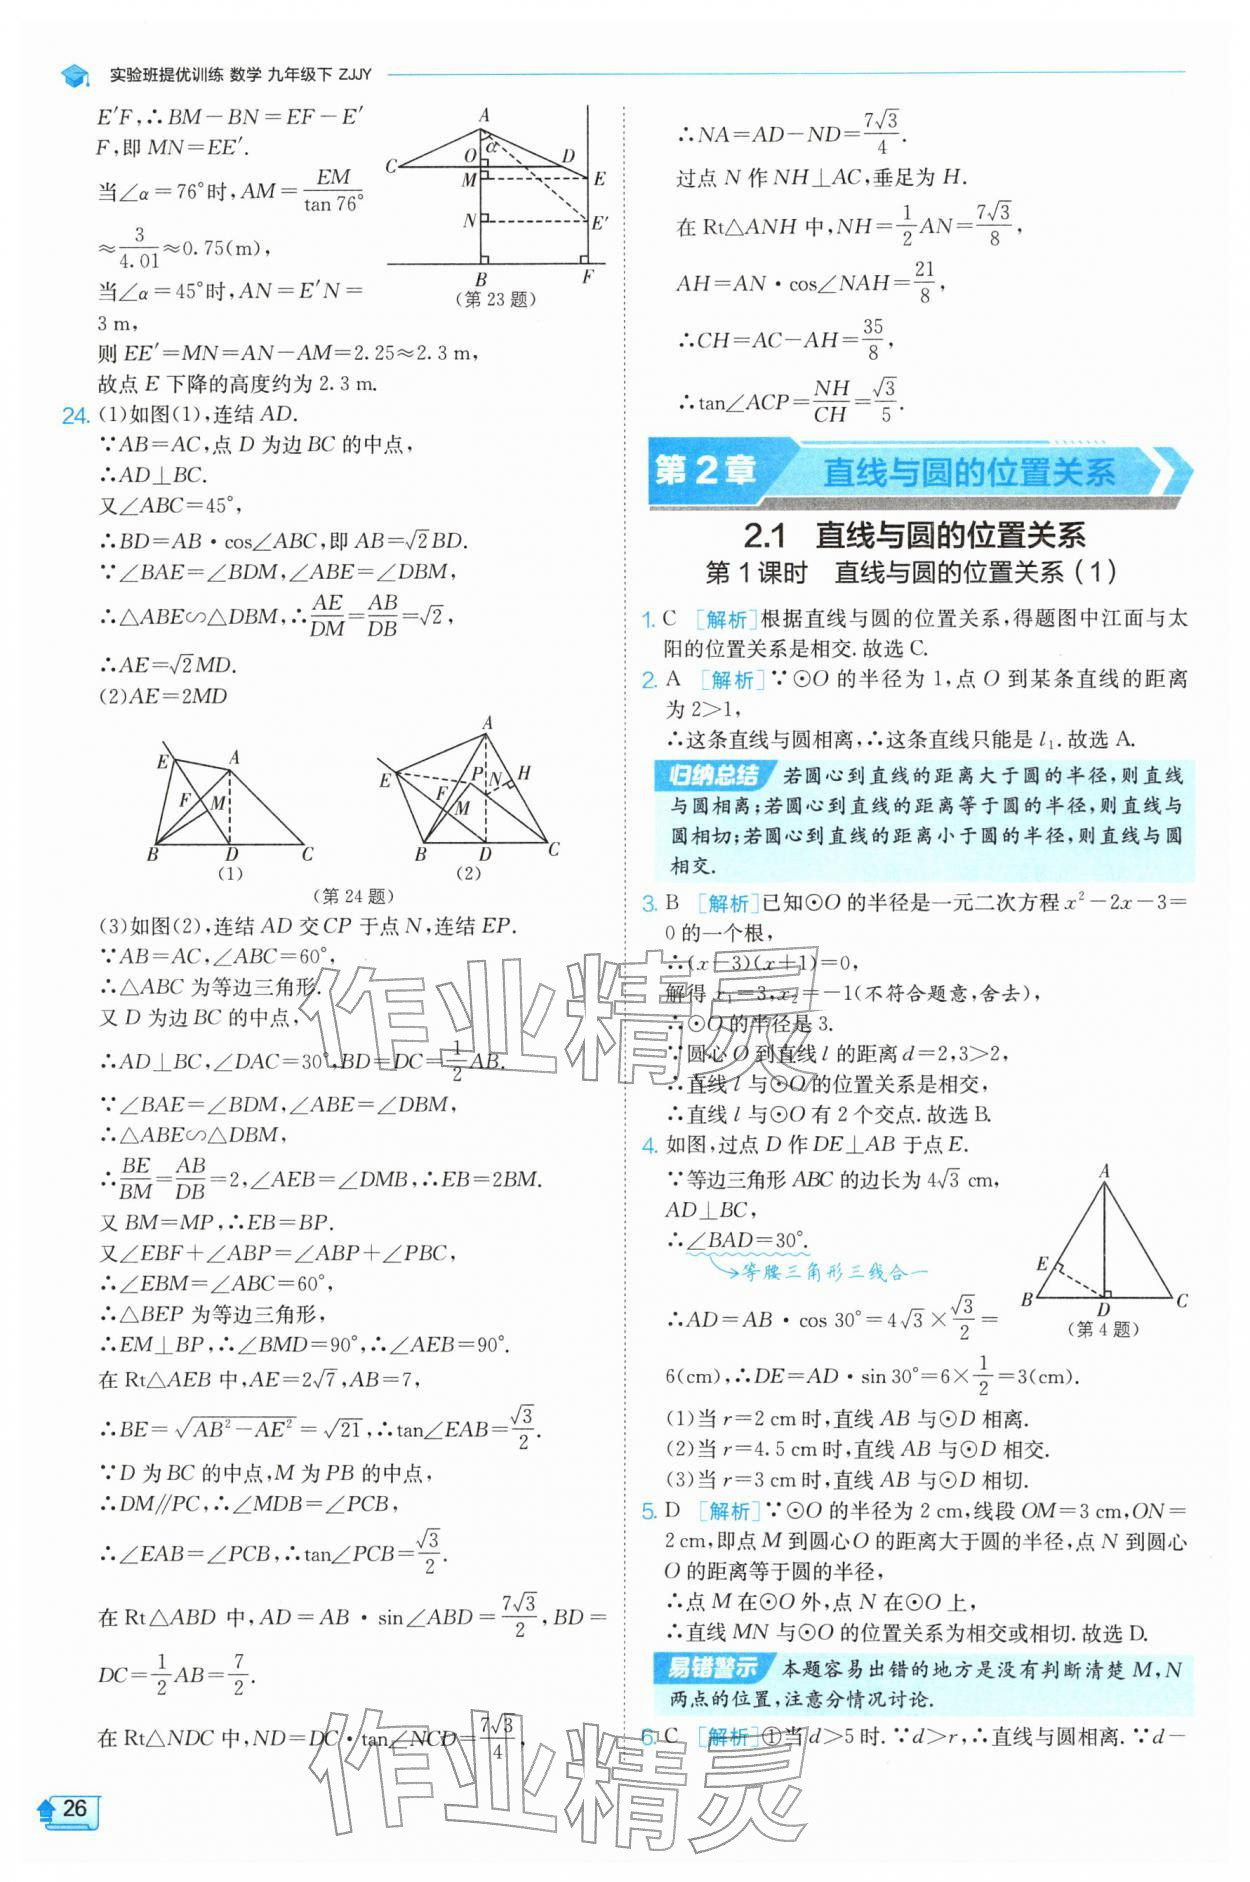 实验班提优训练 数学 九年级下 ZJJY
E′F,∴BM-BN=EF-E′
F,即MN=EE′.
当∠α=76°时,AM=EM/tan 76°
≈3/4.01≈0.75(m),
当∠α=45°时,AN=E′N=
3 m,
则EE′=MN=AN-AM=2.25≈2.3 m,
故点E下降的高度约为2.3 m.
A
C
O
α
D
M
E
N
E′
B
F
(第23题)
24. (1)如图(1),连结AD.
∵AB=AC,点D为边BC的中点,
∴AD⊥BC.
又∠ABC=45°,
∴BD=AB·cos∠ABC,即AB=√2BD.
∵∠BAE=∠BDM,∠ABE=∠DBM,
∴△ABE∽△DBM,∴AE/DM=AB/DB=√2,
∴AE=√2MD.
(2)AE=2MD
E
A
F
M
B
D
C
(1)
A
E
P
N
H
F
M
B
D
C
(2)
(第24题)
(3)如图(2),连结AD交CP于点N,连结EP.
∵AB=AC,∠ABC=60°,
∴△ABC为等边三角形.
又D为边BC的中点,
∴AD⊥BC,∠DAC=30°,BD=DC=1/2AB.
∵∠BAE=∠BDM,∠ABE=∠DBM,
∴△ABE∽△DBM,
∴BE/BM=AB/DB=2,∠AEB=∠DMB,∴EB=2BM.
又BM=MP,∴EB=BP.
又∠EBF+∠ABP=∠ABP+∠PBC,
∴∠EBM=∠ABC=60°,
∴△BEP为等边三角形,
∴EM⊥BP,∴∠BMD=90°,∴∠AEB=90°.
在Rt△AEB中,AE=2√7,AB=7,
∴BE=√(AB²-AE²)=√21,∴tan∠EAB=√3/2.
∵D为BC的中点,M为PB的中点,
∴DM∥PC,∴∠MDB=∠PCB,
∴∠EAB=∠PCB,∴tan∠PCB=√3/2.
在Rt△ABD中,AD=AB·sin∠ABD=7√3/2,BD=
DC=1/2AB=7/2.
在Rt△NDC中,ND=DC·tan∠NCD=7√3/4,
26
∴NA=AD-ND=7√3/4.
过点N作NH⊥AC,垂足为H.
在Rt△ANH中,NH=1/2AN=7√3/8,
AH=AN·cos∠NAH=21/8,
∴CH=AC-AH=35/8,
∴tan∠ACP=NH/CH=√3/5.
第2章 直线与圆的位置关系
2.1 直线与圆的位置关系
第1课时 直线与圆的位置关系(1)
1. C [解析]根据直线与圆的位置关系,得题图中江面与太
阳的位置关系是相交.故选C.
2. A [解析]∵⊙O的半径为1,点O到某条直线的距离
为2>1,
∴这条直线与圆相离,∴这条直线只能是l₁.故选A.
归纳总结 若圆心到直线的距离大于圆的半径,则直线
与圆相离;若圆心到直线的距离等于圆的半径,则直线与
圆相切;若圆心到直线的距离小于圆的半径,则直线与圆
相交.
3. B [解析]已知⊙O的半径是一元二次方程x²-2x-3=
0的一个根,
∴(x-3)(x+1)=0,
解得x₁=3,x₂=-1(不符合题意,舍去),
∴⊙O的半径是3.
∵圆心O到直线l的距离d=2,3>2,
∴直线l与⊙O的位置关系是相交,
∴直线l与⊙O有2个交点.故选B.
4. 如图,过点D作DE⊥AB于点E.
∵等边三角形ABC的边长为4√3 cm,
AD⊥BC,
∴∠BAD=30°.
等腰三角形三线合一
∴AD=AB·cos 30°=4√3×√3/2=
A
E
B
D
C
(第4题)
6(cm),∴DE=AD·sin 30°=6×1/2=3(cm).
(1)当r=2 cm时,直线AB与⊙D相离.
(2)当r=4.5 cm时,直线AB与⊙D相交.
(3)当r=3 cm时,直线AB与⊙D相切.
5. D [解析]∵⊙O的半径为2 cm,线段OM=3 cm,ON=
2 cm,即点M到圆心O的距离大于圆的半径,点N到圆心
O的距离等于圆的半径,
∴点M在⊙O外,点N在⊙O上,
∴直线MN与⊙O的位置关系为相交或相切.故选D.
易错警示 本题容易出错的地方是没有判断清楚M,N
两点的位置,注意分情况讨论.
6. C [解析]①当d>5时.∵d>r,∴直线与圆相离.∵d-
作业精灵
作业精灵